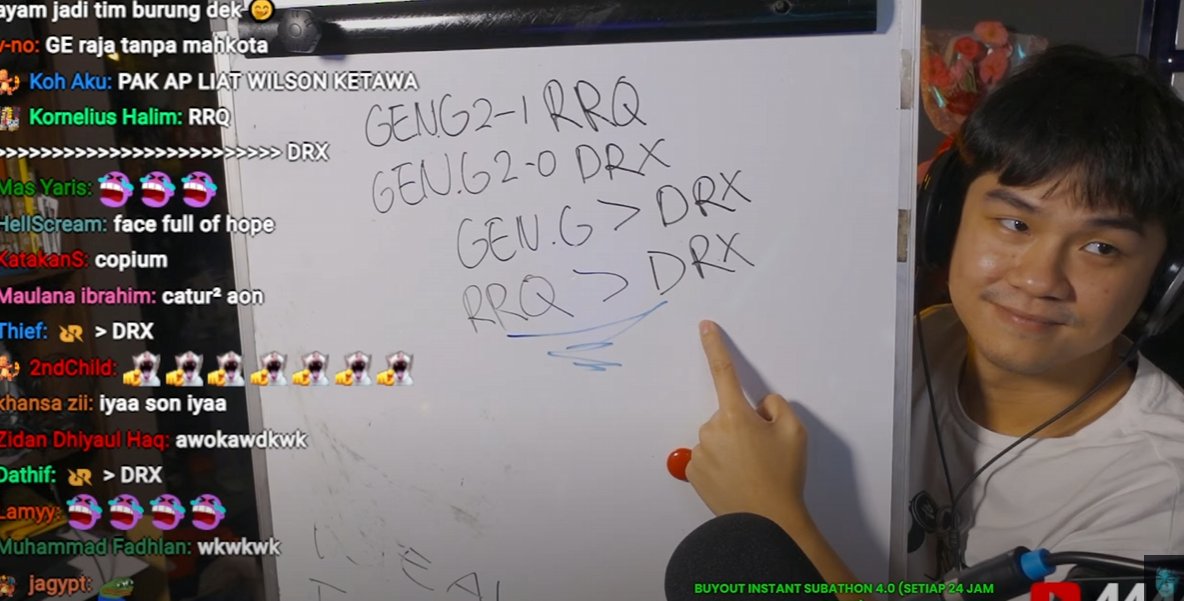 ayam jadi tim burung dek
v-no: GE raja tanpa mahkota
Koh Aku: PAK AP LIAT WILSON KETAWA
Kornelius Halim: RRQ
>>>>>>>>>>>>>>>>>>>>>>>>>> DRX
Mas Yaris:
HellScream: face full of hope
KatakanS: copium
Maulana ibrahim: catur² aon
Thief: > DRX
2ndChild:
khansa zii: iyaa son iyaa
Zidan Dhiyaul Haq: awokawdkwk
Dathif: > DRX
Lamyy:
Muhammad Fadhlan: wkwkwk
jagypt:
GEN.G 2-1 RRQ
GEN.G 2-0 DRX
GEN.G > DRX
RRQ > DRX
BUYOUT INSTANT SUBATHON 4.0 (SETIAP 24 JAM
44